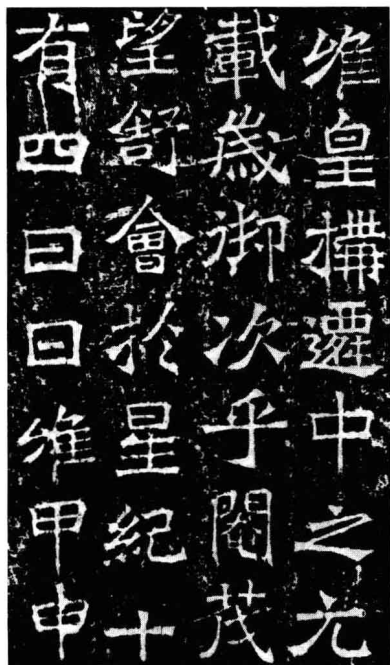 惟皇搆遷中之元
載歲御次乎閹茂
望舒會扵星紀十
有四日日維甲申